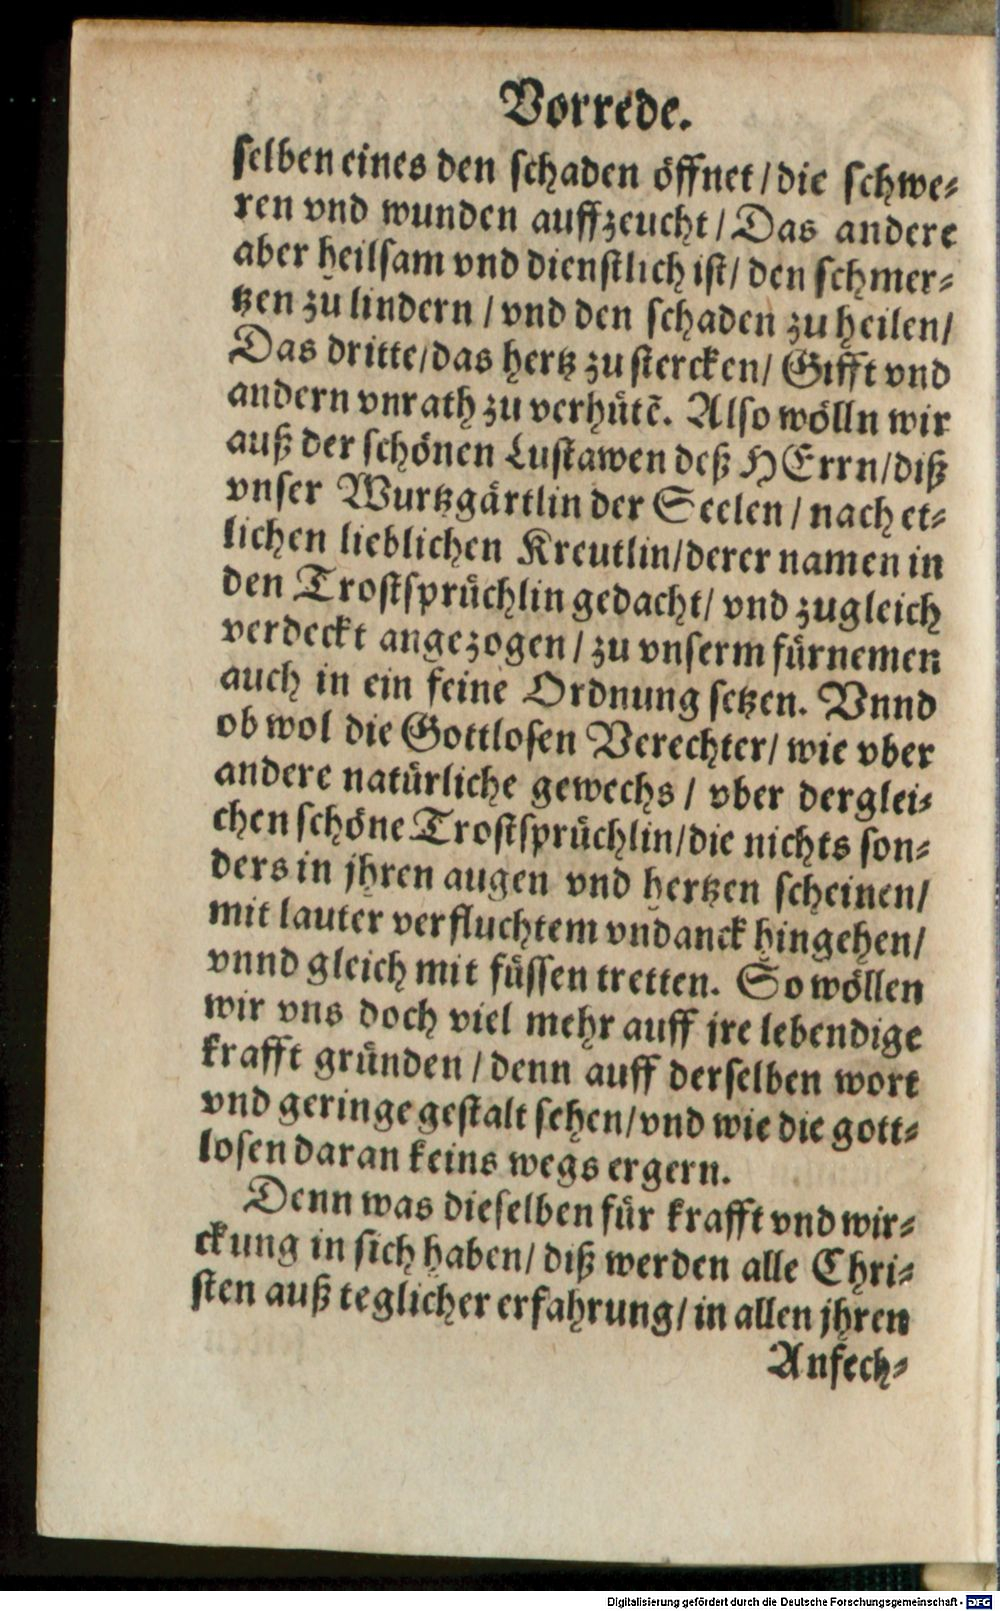 Vorrede.
selben eines den schaden öffnet / die schwe-
ren vnd wunden auffzeucht / Das andere
aber heilsam vnd dienstlich ist / den schmer-
tzen zu lindern / vnd den schaden zu heilen /
Das dritte / das hertz zu stercken / Gifft vnd
andern vnrath zu verhütē. Also wölln wir
auß der schönen Lustawen deß HErrn / diß
vnser Wurtzgärtlin der Seelen / nach et-
lichen lieblichen Kreutlin / derer namen in
den Trostsprüchlin gedacht / vnd zugleich
verdeckt angezogen / zu vnserm fürnemen
auch in ein feine Ordnung setzen. Vnnd
ob wol die Gottlosen Verechter / wie vber
andere natürliche gewechs / vber derglei-
chen schöne Trostsprüchlin / die nichts son-
ders in jhren augen vnd hertzen scheinen /
mit lauter verfluchtem vndanck hingehen /
vnnd gleich mit füssen tretten. So wöllen
wir vns doch viel mehr auff ire lebendige
krafft gründen / denn auff derselben wort
vnd geringe gestalt sehen / vnd wie die gott-
losen daran keins wegs ergern.
Denn was dieselben für krafft vnd wir-
ckung in sich haben / diß werden alle Chri-
sten auß teglicher erfahrung / in allen jhren
Anfech-
Digitalisierung gefördert durch die Deutsche Forschungsgemeinschaft - DFG